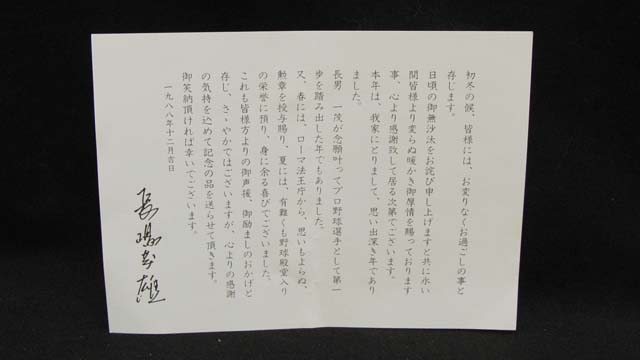 初冬の候、皆様には、お変りなくお過ごしの事と
存じます。
日頃の御無沙汰をお詫び申し上げますと共に永い
間皆様より変らぬ暖かき御厚情を賜っております
事、心より感謝致して居る次第でございます。
本年は、我家にとりまして、思い出深き年であり
ました。
長男　一茂が念願叶ってプロ野球選手として第一
歩を踏み出した年でもありました。
又、春には、ローマ法王庁から、思いもよらぬ、
勲章を授与賜り、夏には、有難くも野球殿堂入り
の栄誉に預り、身に余る喜びでございました。
これも皆様方よりの御声援、御励ましのおかげと
存じ、さゝやかではございますが、心よりの感謝
の気持を込めて記念の品を送らせて頂きます。
御笑納頂ければ幸いでございます。
一九八八年十二月吉日
長嶋茂雄